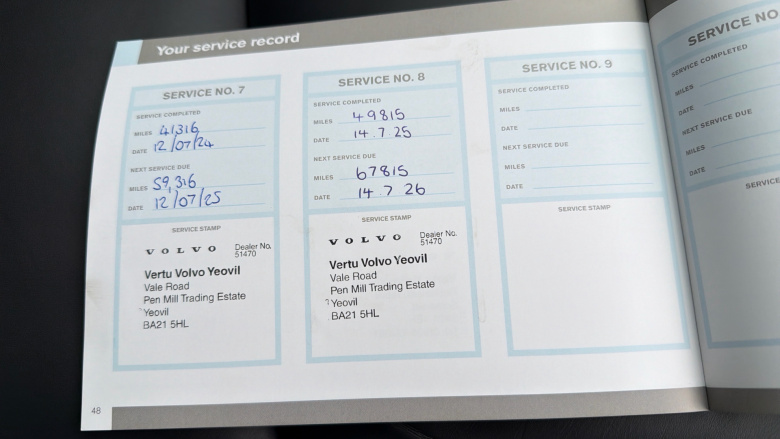 Your service record
SERVICE NO. 7
SERVICE COMPLETED
MILES 41316
DATE 12/07/24
NEXT SERVICE DUE
MILES 59,316
DATE 12/07/25
SERVICE STAMP
VOLVO
Dealer No.
51470
Vertu Volvo Yeovil
Vale Road
Pen Mill Trading Estate
Yeovil
BA21 5HL
SERVICE NO. 8
SERVICE COMPLETED
MILES 49815
DATE 14.7.25
NEXT SERVICE DUE
MILES 67815
DATE 14 7 26
SERVICE STAMP
VOLVO
Dealer No.
51470
Vertu Volvo Yeovil
Vale Road
Pen Mill Trading Estate
Yeovil
BA21 5HL
SERVICE NO. 9
SERVICE COMPLETED
MILES
DATE
NEXT SERVICE DUE
MILES
DATE
SERVICE STAMP
SERVICE NO
SERVICE COMPLETED
MILES
DATE
NEXT SERVICE DUE
MILES
DATE
SERVICE
48